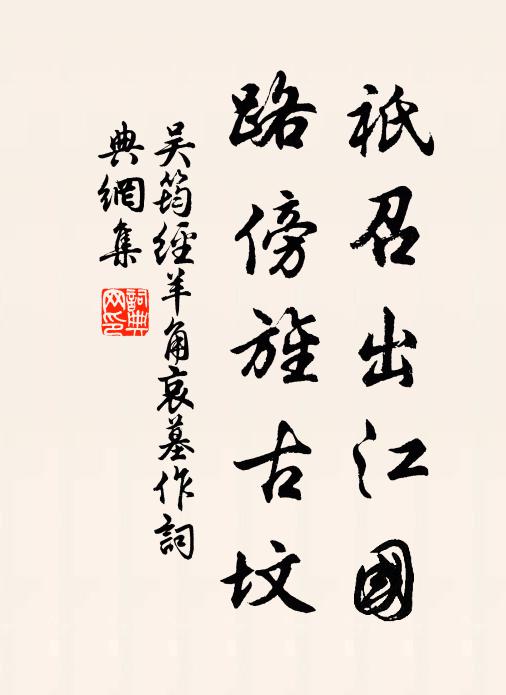 祇召出江國
路傍旌古墳
吳筠經羊角哀墓作詞
典網集
詞典網印